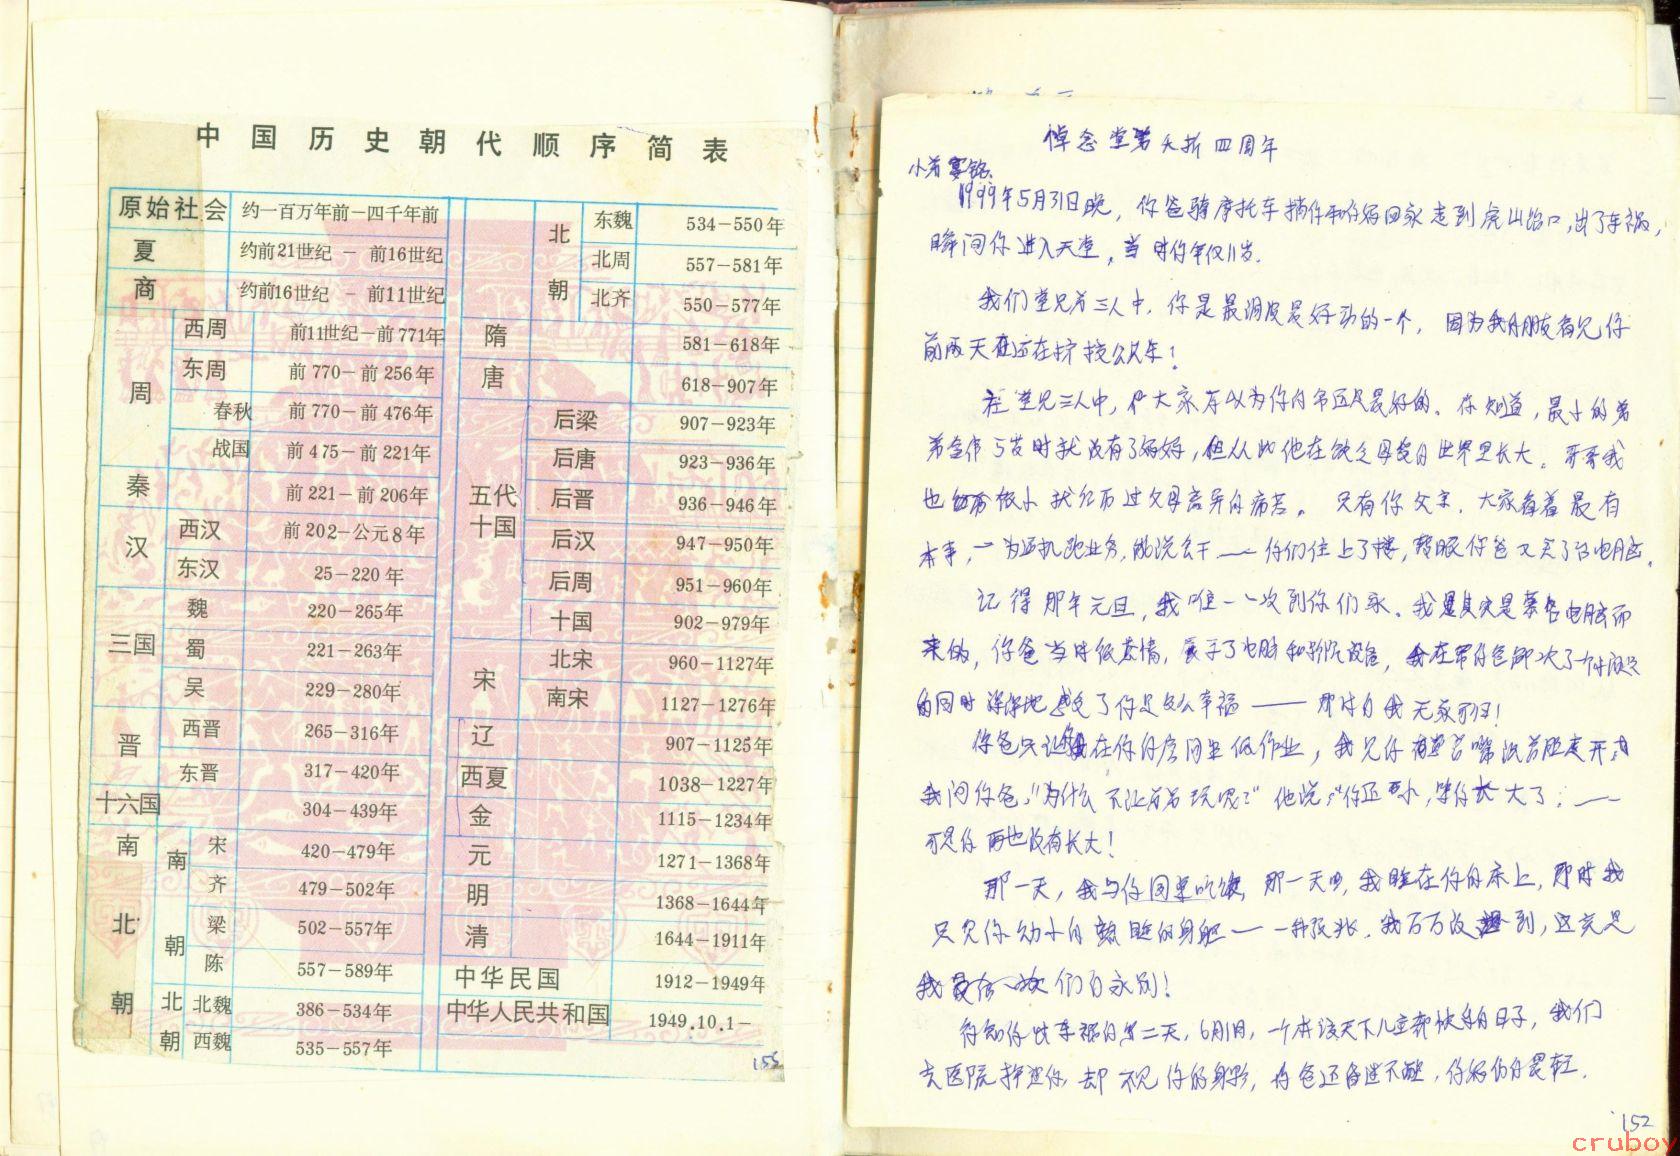 中国历史朝代顺序简表
原始社会 约一百万年前－四千年前
夏 约前21世纪 － 前16世纪
商 约前16世纪 － 前11世纪
周 西周 前11世纪－前771年
东周 前770－前256年
春秋 前770－前476年
战国 前475－前221年
秦 前221－前206年
汉 西汉 前202－公元8年
东汉 25－220年
三国 魏 220－265年
蜀 221－263年
吴 229－280年
晋 西晋 265－316年
东晋 317－420年
十六国 304－439年
南北朝 南朝 宋 420－479年
齐 479－502年
梁 502－557年
陈 557－589年
北朝 北魏 386－534年
西魏 535－557年
北朝 东魏 534－550年
北周 557－581年
北齐 550－577年
隋 581－618年
唐 618－907年
五代十国 后梁 907－923年
后唐 923－936年
后晋 936－946年
后汉 947－950年
后周 951－960年
十国 902－979年
宋 北宋 960－1127年
南宋 1127－1276年
辽 907－1125年
西夏 1038－1227年
金 1115－1234年
元 1271－1368年
明 1368－1644年
清 1644－1911年
中华民国 1912－1949年
中华人民共和国 1949.10.1－
155
悼念堂弟夭折四周年
小弟
1999年5月31日晚，你爸骑摩托车捎你和你妈回家走到虎山路口，出了车祸，
瞬间你进入天堂，当时你年仅11岁.
我们堂兄弟三人中，你是最调皮最好动的一个，因为我的朋友看见你
前两天在还在扒公交车！
在堂兄三人中，大家都以为你的命运是最好的。你知道，最小的弟
弟 5岁时就没有了妈妈，但从此他在缺乏母爱的世界里长大。哥哥我
也 很小就经历过父母离异的痛苦。只有你父亲，大家看着最有
本事，业务，能说会干——你们住上了楼，你爸又买了台电脑.
记得那年元旦，我唯一一次到你们家。我其实是慕名电脑而
来的，你爸当时很热情，展示了电脑和影院设备，我在帮你爸解决了一个小问题
的同时深深地感受了你是多么幸福——那时的我无家可归！
你爸只让你在你的房间里做作业，我见你 嘴 不
我问你爸，“为什么不让弟弟玩呢？”他说：“你还小，等你长大了.——
可是你再也没有长大！
那一天，我与你同桌吃饭 那一天，我睡在你的床上，那时我
只见你幼小的熟睡的身躯——一张. 我万万没想到，这竟是
我 一次 们的永别！
得知你 车祸的第二天，6月1日，一个本该天下儿童都快乐的日子，我们
去医院 你，却不见你的身影，你爸还昏迷不醒，你妈伤得最轻.
152
cruboy